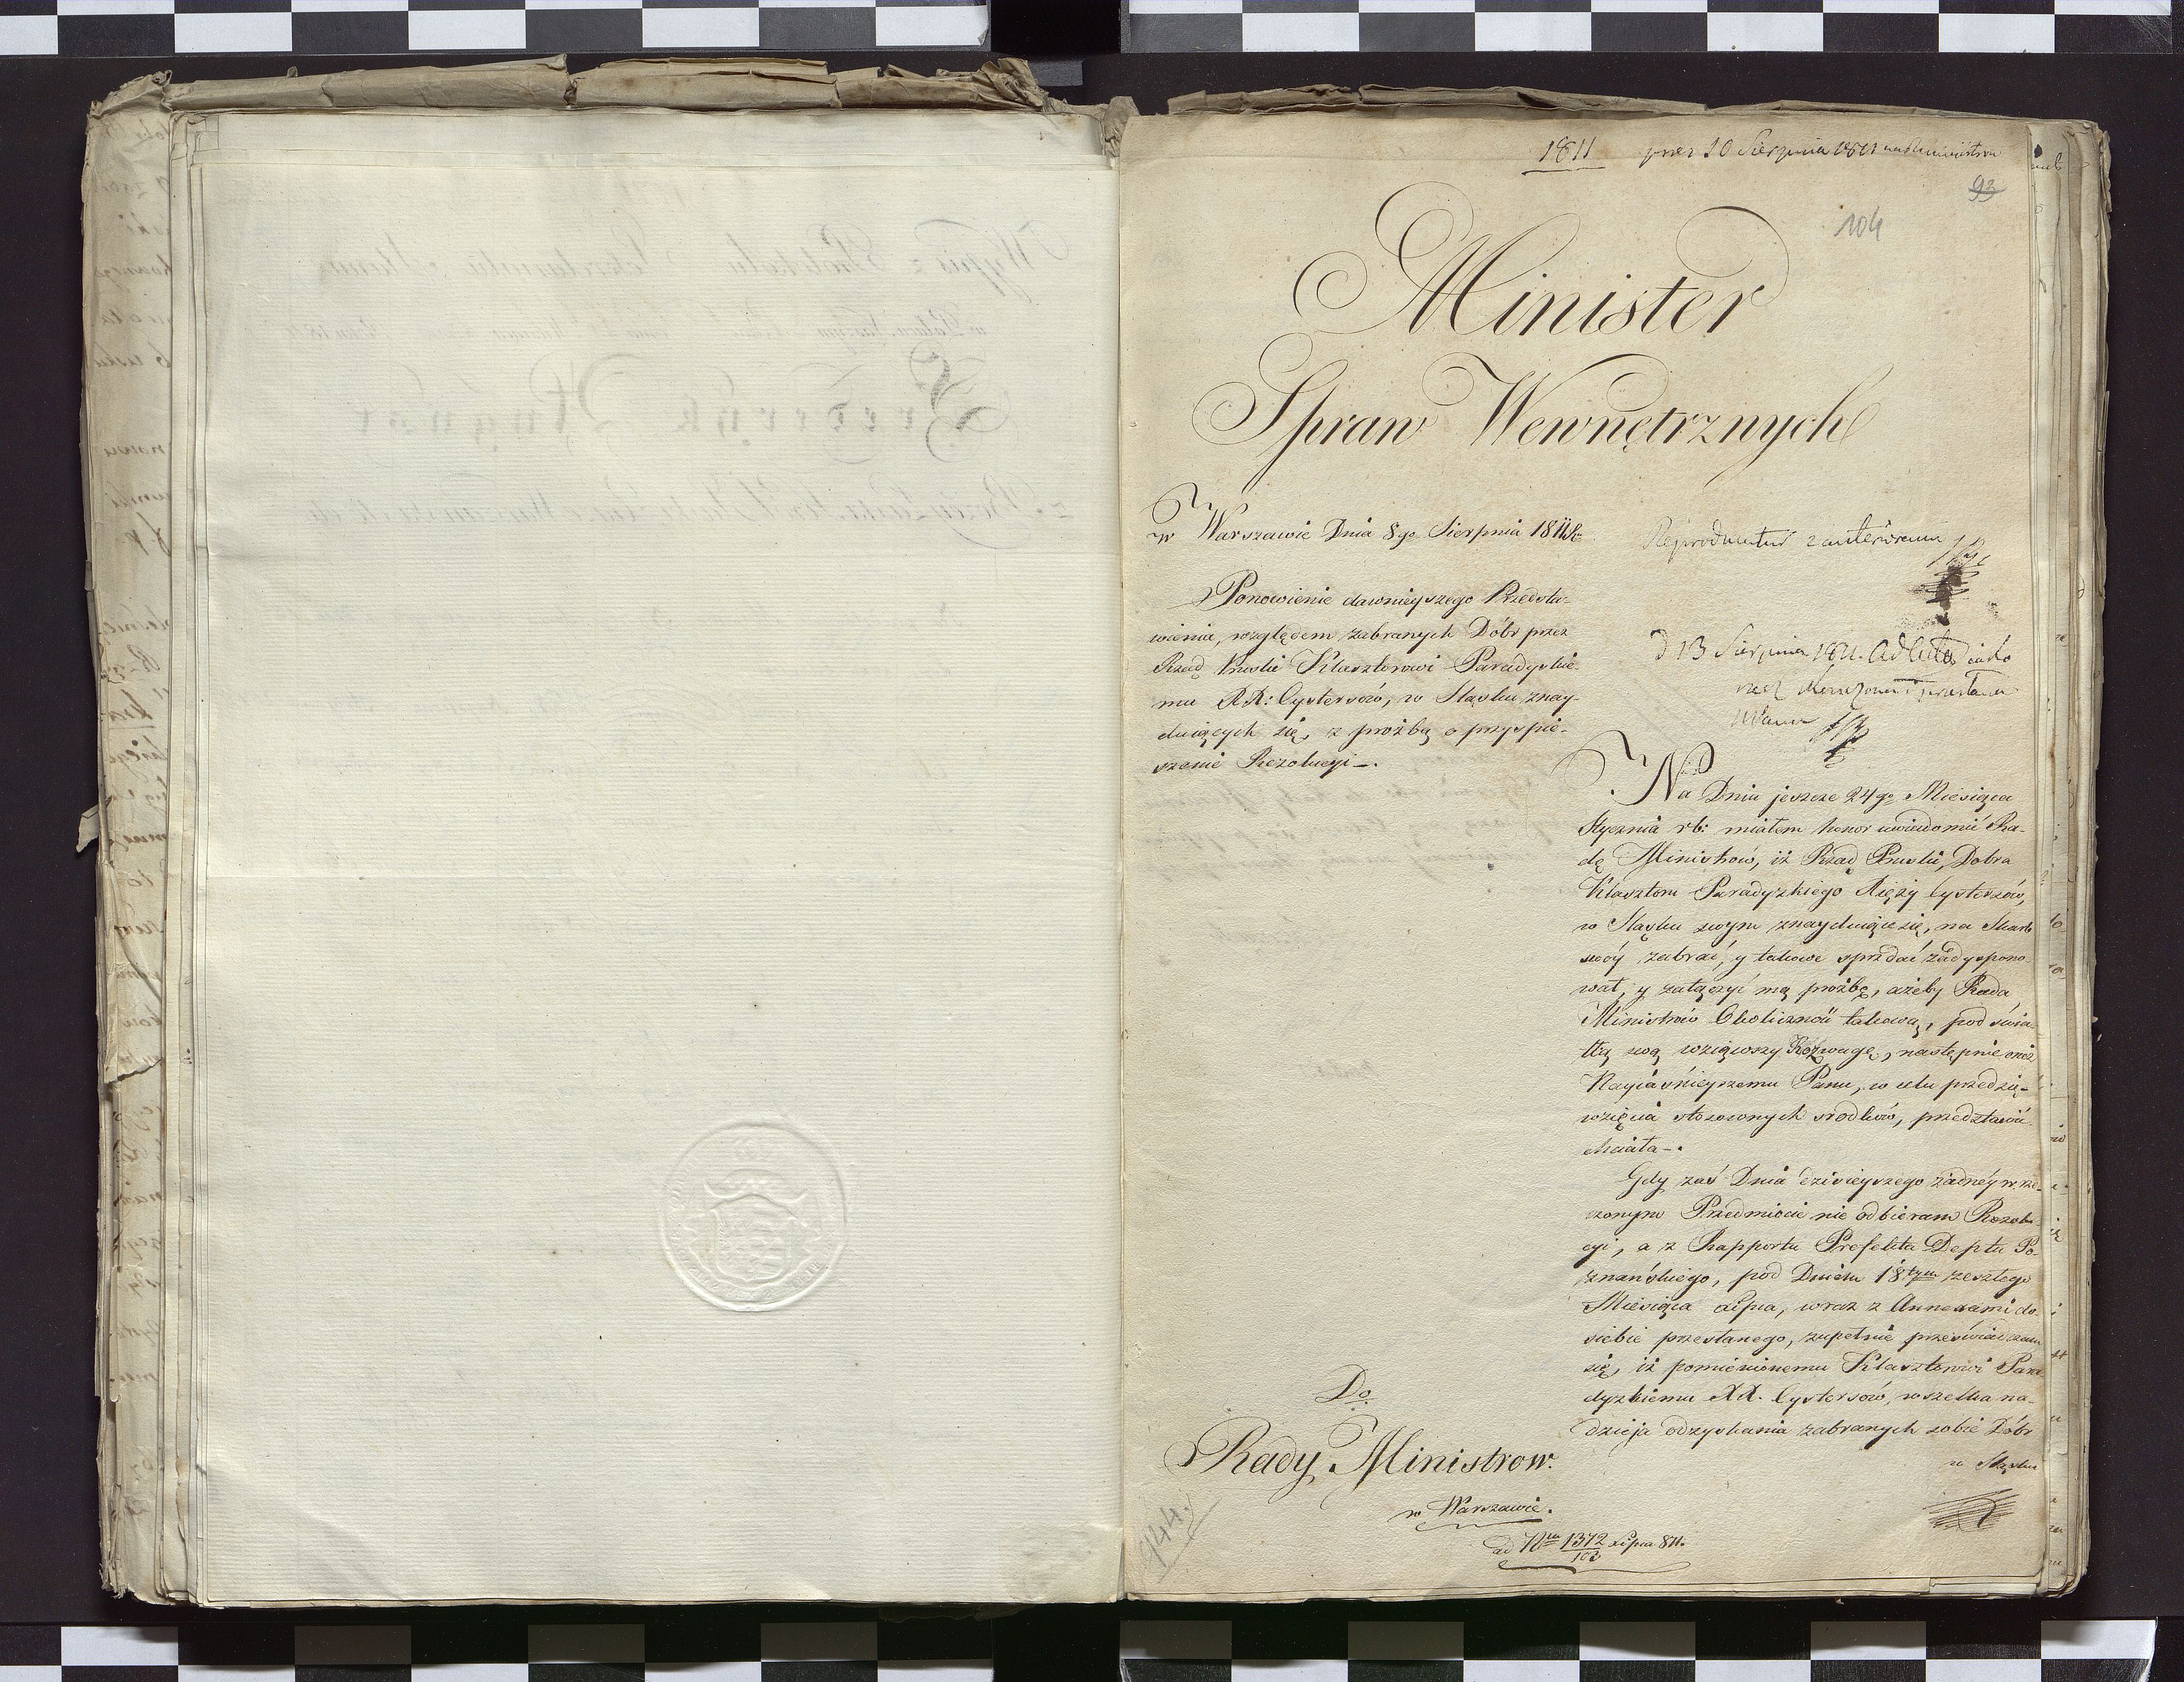 1811
10 Sierpnia 1811
93
104
Minister
Spraw Wewnętrznych
w Warszawie Dnia 8go Sierpnia 1811 Ro
Reproducatur
Ponowienie dawnieyszego Przedsta-
wienia, względem zabranych Dóbr przez
Rząd Pruski Klasztorowi Paradyskie-
mu XX: Cystersów, w Sląsku znay-
duiących się, z proźbą o przyspie-
szenie Rezolucyi -.
d 13 Sierpnia 1811. Ad acta iako
rzecz
Na Dniu jeszcze 24go Miesiąca
Stycznia rb: miałem honor uwiadomić Ra-
dę Ministrów, iż Rząd Pruski, Dobra
Klasztoru Paradyzkiego Xięży Cystersów,
w Sląsku swym znayduiące się, na Skarb
swóy zabrać, y takowe sprzdać zadyspono-
wał, y załączyć mą proźbę, ażeby Rada
Ministrów Okoliczność takową, pod świa-
tłą swą wziąwszy Rozwagę, następnie oneż
Nayiaśnieyszemu Panu, w celu przedsię-
wzięcia stosownych srodków, przedstawić
chciała -.
Gdy zaś Dnia dzisieyszego żadnéy w rze-
czonym Przedmiocie nie odbieram Rezolu-
cyi, a z Rapportu Prefekta Deptu Po-
znańskiego, pod Dniem 18tym zeszłego
Miesiąca Lipca, wraz z Annexami do
siebie przesłanego, zupełnie przeświadczam
się, iż pomienionemu Klasztorowi Para-
dyzkiemu XX. Cystersów, wszelka na-
dzieja odzyskania zabranych sobie Dóbr
w Sląsku
Do
Rady Ministrow.
w Warszawie.
ad Nrum 1372/102 Lipca 811.
144.